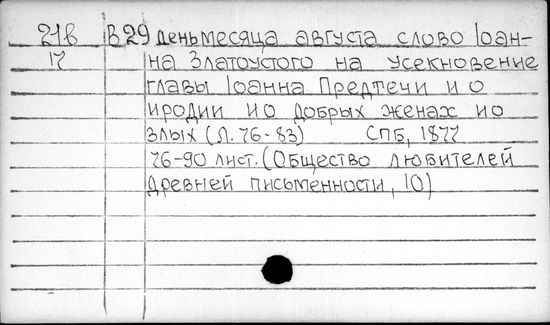 21в В 29 деньмесяца августа слово Іоан-
17 на Златоустого на усекновение
главы Іоанна Предтечи и о
иродии и о добрых женах и о
злых (Л. 76-83) СПБ, 1877
76-90 лист. (Общество любителей
древней письменности, 10)